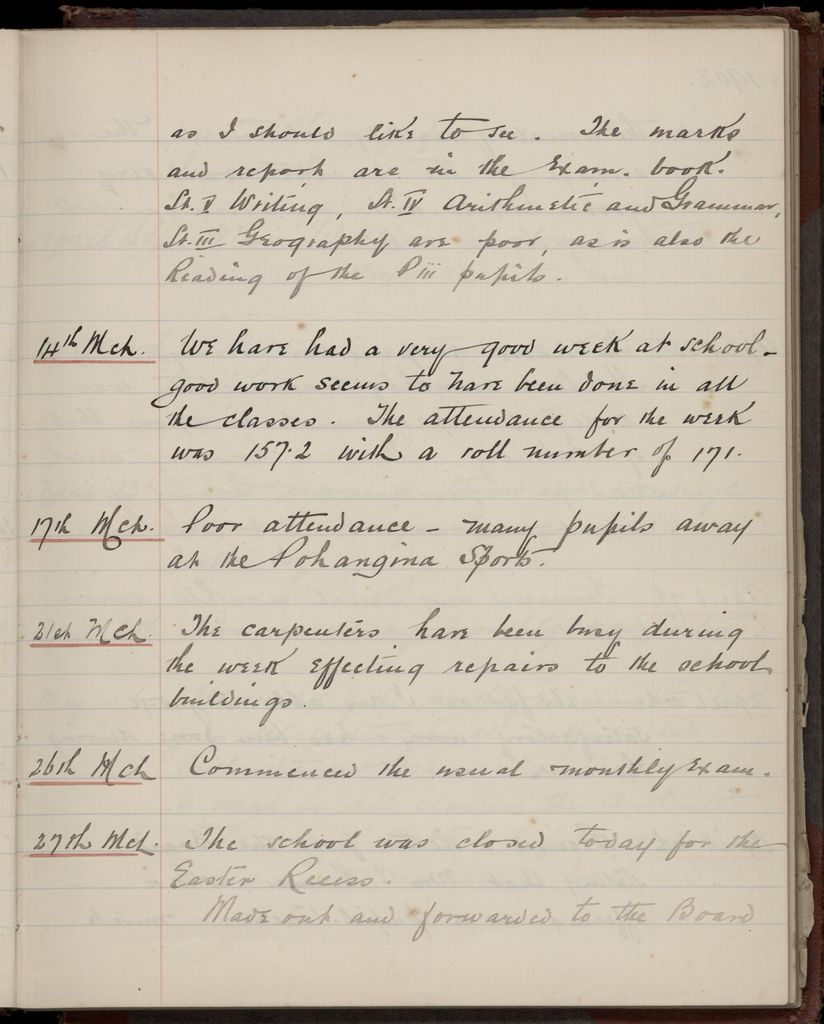 as I should like to see. The marks
and report are in the Exam. book.
St. V Writing, St. IV Arithmetic and Grammar,
St. III Geography are poor, as is also the
Reading of the P iii pupils.
14th Mch. We have had a very good week at school -
good work seems to have been done in all
the classes. The attendance for the week
was 157.2 with a roll number of 171.
17th Mch. Poor attendance - many pupils away
at the Pohangina Sports.
21st Mch. The carpenters have been busy during
the week effecting repairs to the school
buildings.
26th Mch Commenced the usual monthly Exam.
27th Mch. The school was closed today for the
Easter Recess.
Made out and forwarded to the Board